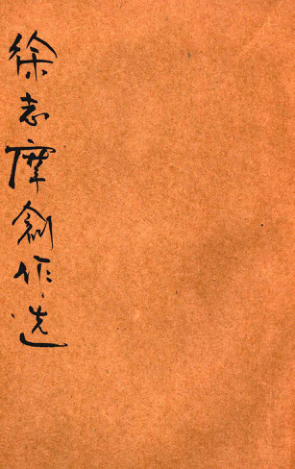 徐志摩創作选